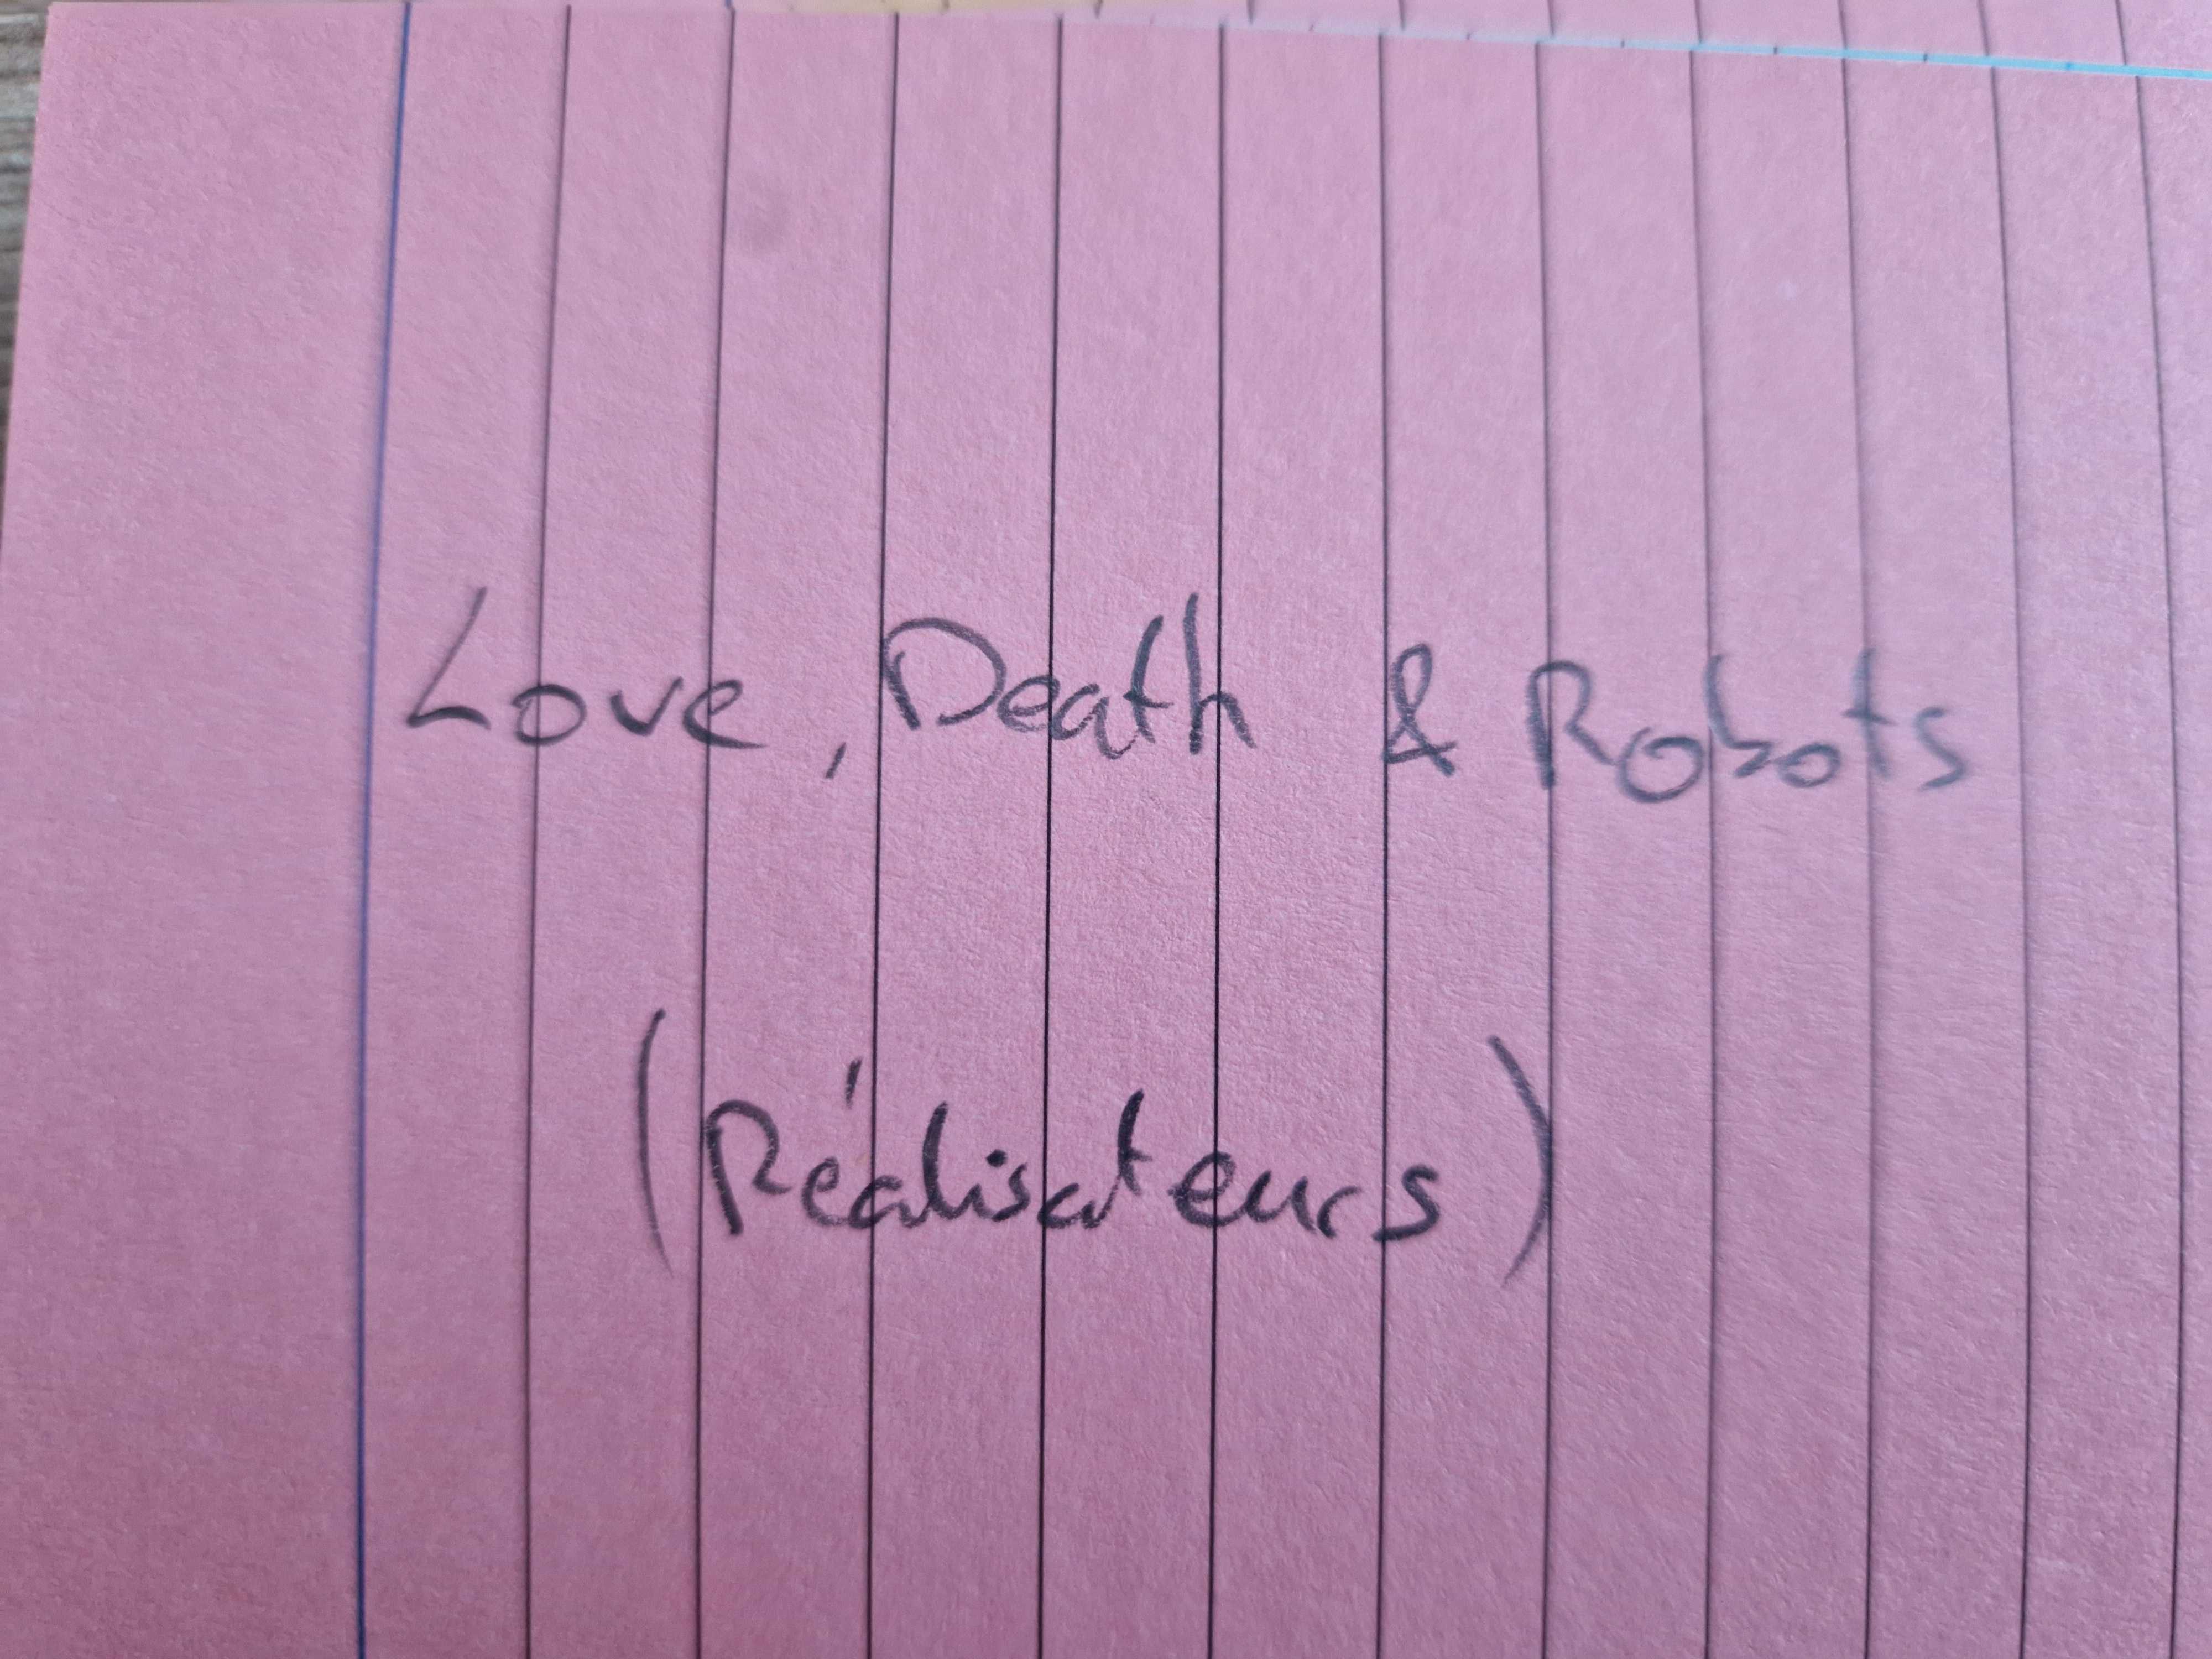 Love, Death & Robots
(Réalisateurs)